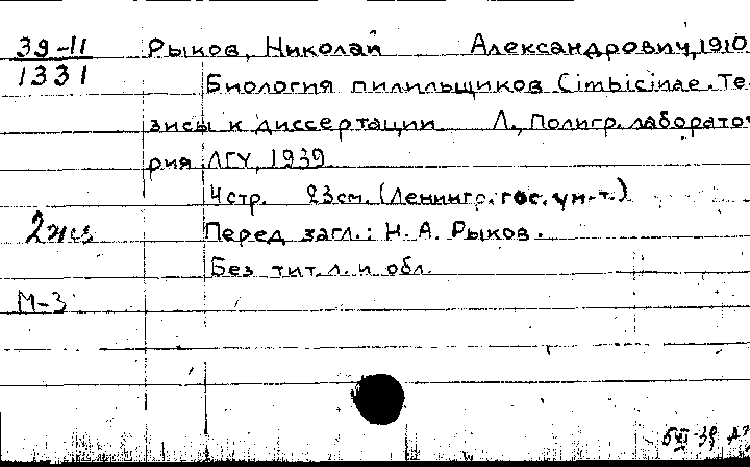 39-11 Рыков, Николай Александрович, 1910
1331
Биология пилильщиков Cimbicinae. Те-
зисы к диссертации Л., Полигр. лаборато-
рия ЛГУ, 1939
4 стр. 23 см. (Ленингр. гос. ун-т.)
2 экз Перед загл.: Н. А. Рыков.
Без тит. л. и обл.
М-3